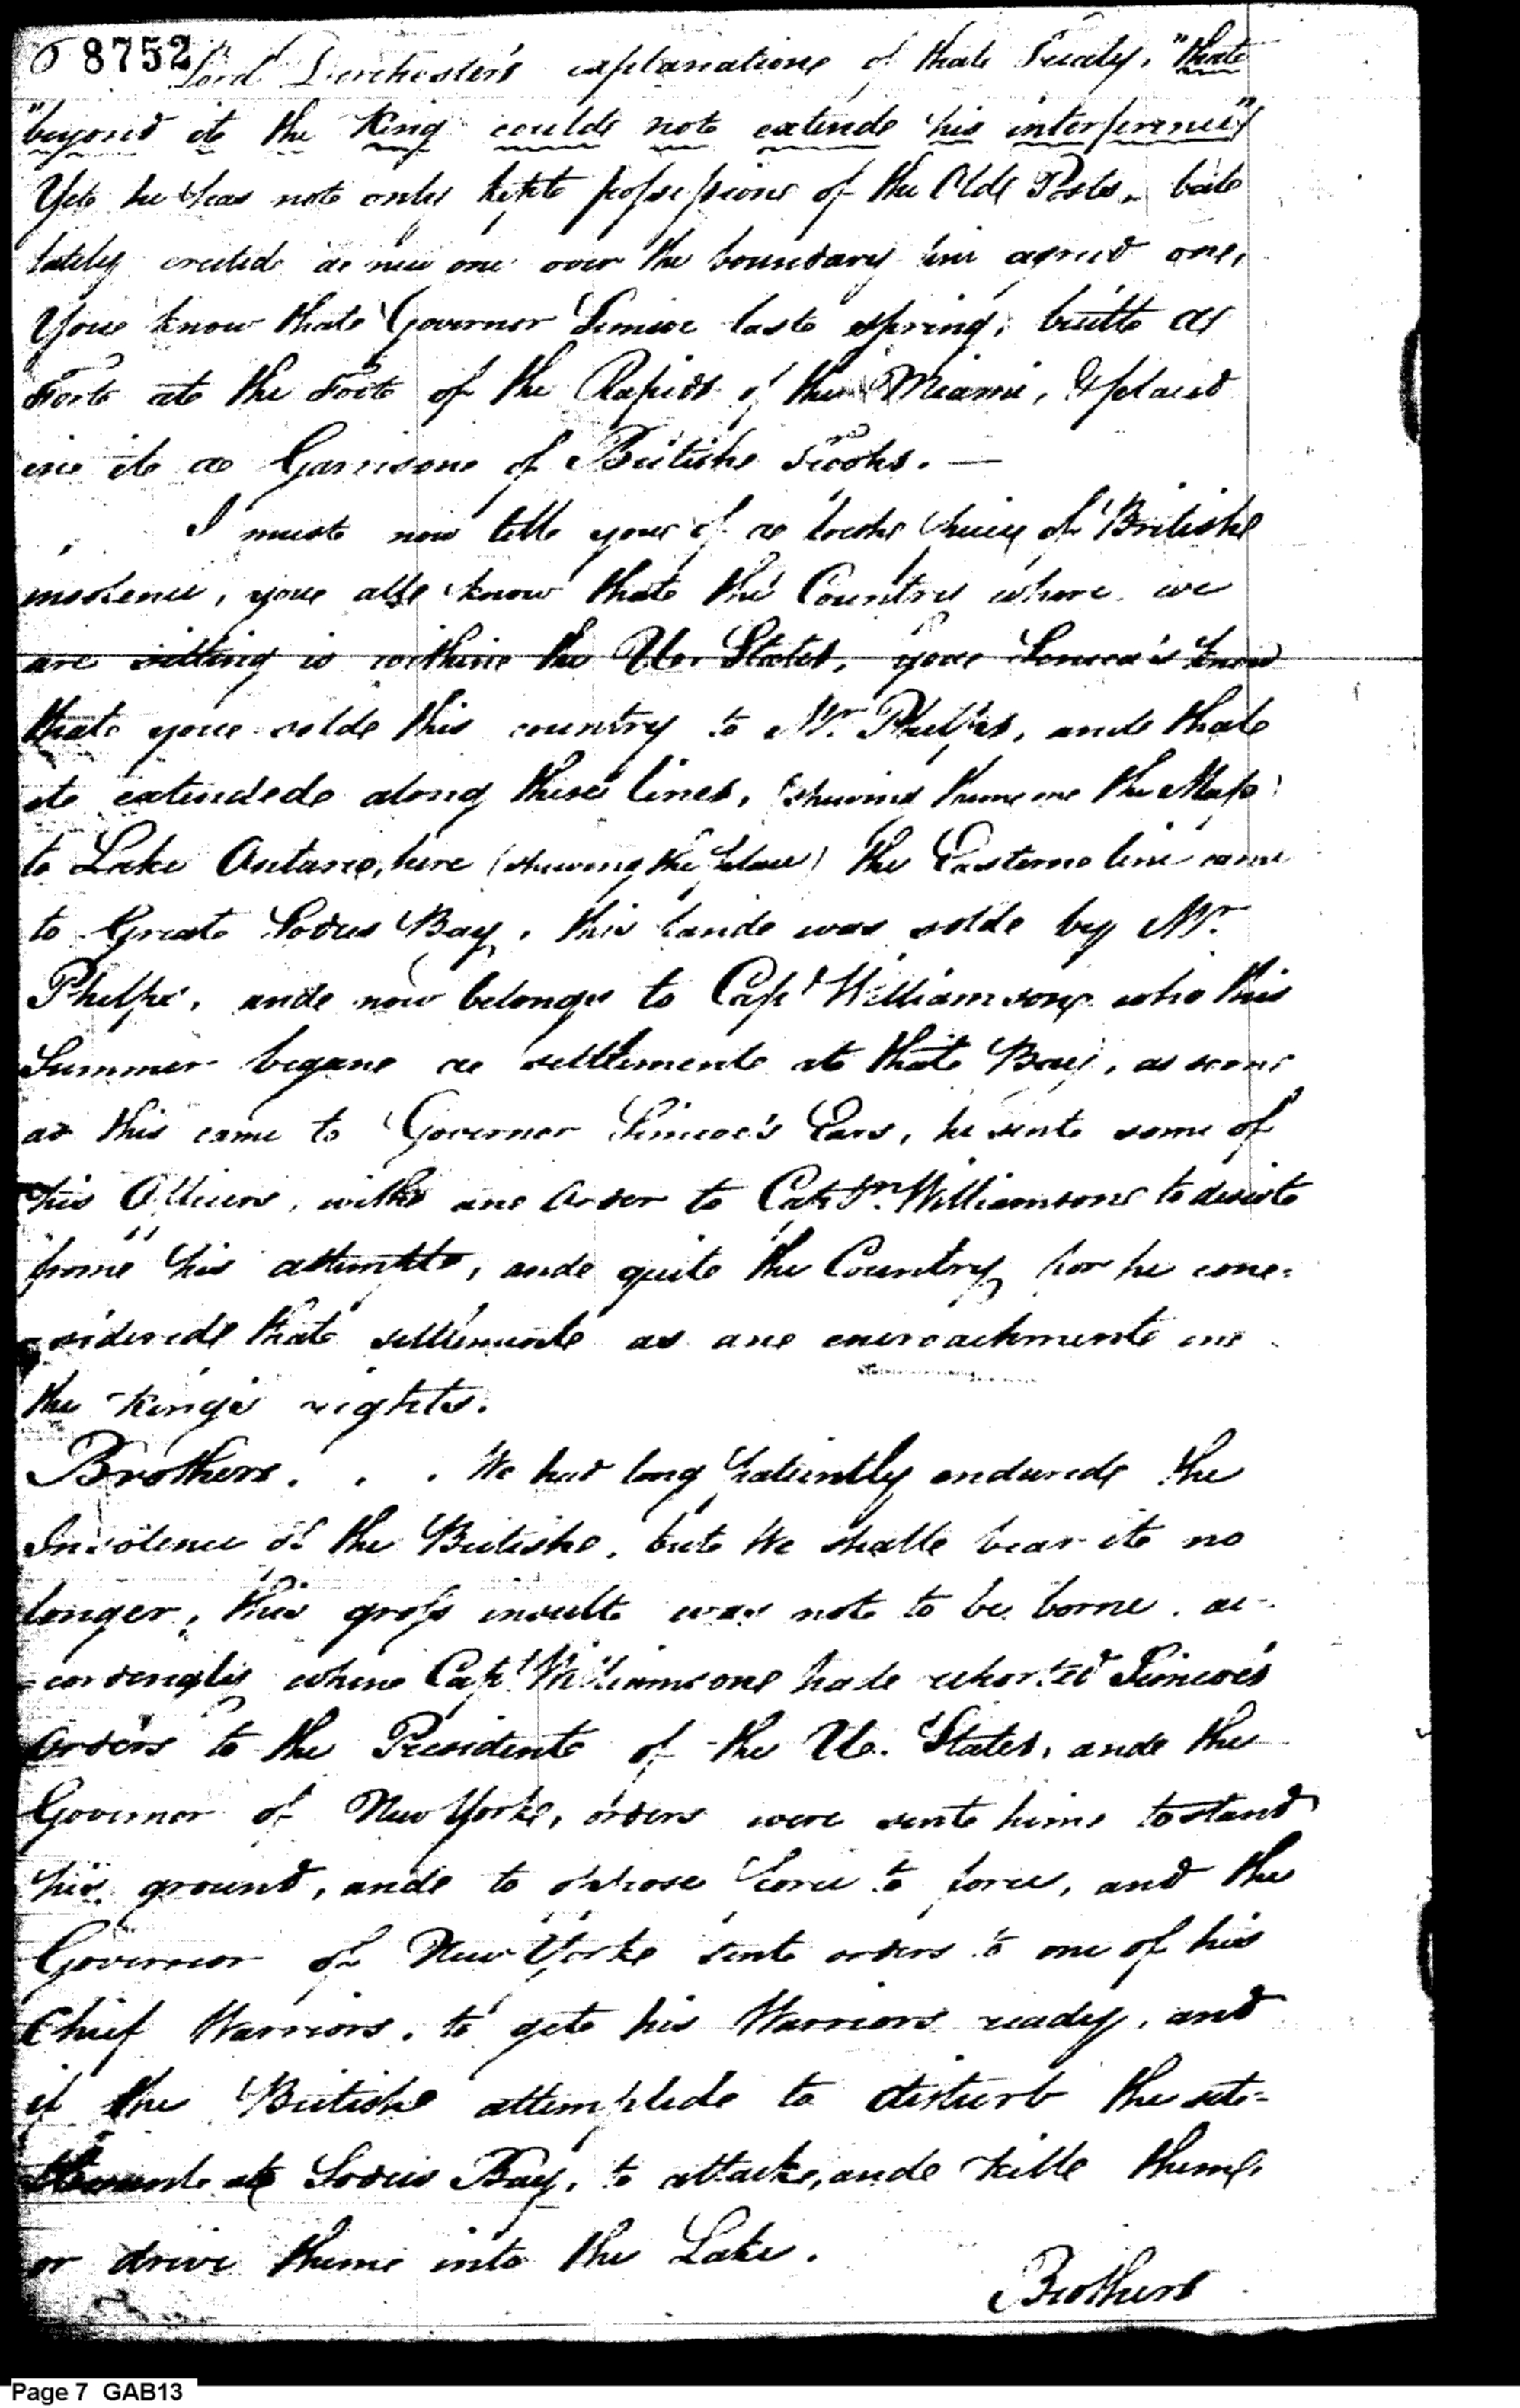 8752
Lord Dorchester's explanation of that Treaty, "that
"beyond it the King could not extend his interference"
Yet he has not only kept possession of the Old Posts, but
lately erected a new one over the boundary line agreed on,
You know that Governor Simcoe last spring, built a
Fort at the Foot of the Rapids of the Miami, & placed
in it a Garrison of British Troops. —
I must now tell you of a fresh piece of British
insolence, you all know that the Country where we
are sitting is within the U. States, you Seneca's know
that you sold this country to Mr. Phelps, and that
it extended along these lines, (shewing them on the Map)
to Lake Ontario, here (shewing the place) the Eastern line came
to Great Sodus Bay, this land was sold by Mr.
Phelps, and now belongs to Capt Williamson who this
Summer began a settlement at that Bay, as soon
as this came to Governor Simcoe's Ears, he sent some of
his Officers, with an Order to Captn. Williamson to desist
from his attempts, and quit the Country, for he con-
=sidered that settlement as an encroachment on
the King's rights.
Brothers. . . We had long patiently endured the
Insolence of the British, but We shall bear it no
longer, this gross insult was not to be borne. ac-
=cordingly when Capt Williamson had reported Simcoe's
Orders to the President of the U. States, and the
Governor of New York, orders were sent him to stand
his ground, and to oppose force to force, and the
Governor of New York sent orders to one of his
Chief Warriors, to get his Warriors ready, and
if the British attempted to disturb the set-
tlement at Sodus Bay, to attack, and kill them,
or drive them into the Lake.
Brothers
Page 7 GAB13